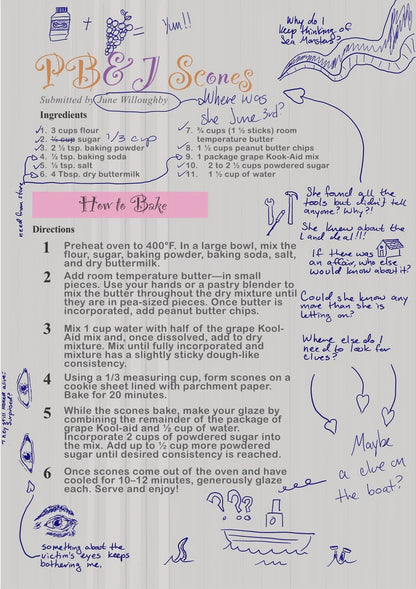 + = Yum!!
Why do I
keep thinking of
Sea Monsters?
PB&J Scones
Submitted by June Willoughby
Where was
she June 3rd?
Ingredients
1. 3 cups flour
2. ¼ cup sugar 1/3 cup
3. 2 ½ tsp. baking powder
4. ½ tsp. baking soda
5. ½ tsp. salt
6. 4 Tbsp. dry buttermilk
7. ¾ cups (1 ½ sticks) room
temperature butter
8. 1 ½ cups peanut butter chips
9. 1 package grape Kook-Aid mix
10. 2 to 2 ½ cups powdered sugar
11. 1 ½ cup of water
need from store
How to Bake
Directions
1 Preheat oven to 400°F. In a large bowl, mix the
flour, sugar, baking powder, baking soda, salt,
and dry buttermilk.
2 Add room temperature butter—in small
pieces. Use your hands or a pastry blender to
mix the butter throughout the dry mixture until
they are in pea-sized pieces. Once butter is
incorporated, add peanut butter chips.
3 Mix 1 cup water with half of the grape Kool-
Aid mix and, once dissolved, add to dry
mixture. Mix until fully incorporated and
mixture has a slightly sticky dough-like
consistency.
4 Using a 1/3 measuring cup, form scones on a
cookie sheet lined with parchment paper.
Bake for 20 minutes.
5 While the scones bake, make your glaze by
combining the remainder of the package of
grape Kool-aid and ½ cup of water.
Incorporate 2 cups of powdered sugar into
the mix. Add up to ½ cup more powdered
sugar until desired consistency is reached.
6 Once scones come out of the oven and have
cooled for 10–12 minutes, generously glaze
each. Serve and enjoy!
She found all the
tools but didn't tell
anyone? Why?!
She knew about the
Land deal!!!
If there was
an affair, who else
would know about it?
Could she know any
more than she is
letting on?
Where else do I
need to look for
clues?
Maybe
a clue on
the boat?
They still looked alive!
Surprised?
something about the
victim's eyes keeps
bothering me.
???